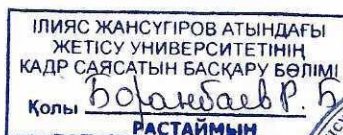 ІЛИЯС ЖАНСҮГІРОВ АТЫНДАҒЫ
ЖЕТІСУ УНИВЕРСИТЕТІНІҢ
КАДР САЯСАТЫН БАСҚАРУ БӨЛІМІ
Қолы Боранбаев Р. Б
РАСТАЙМЫН